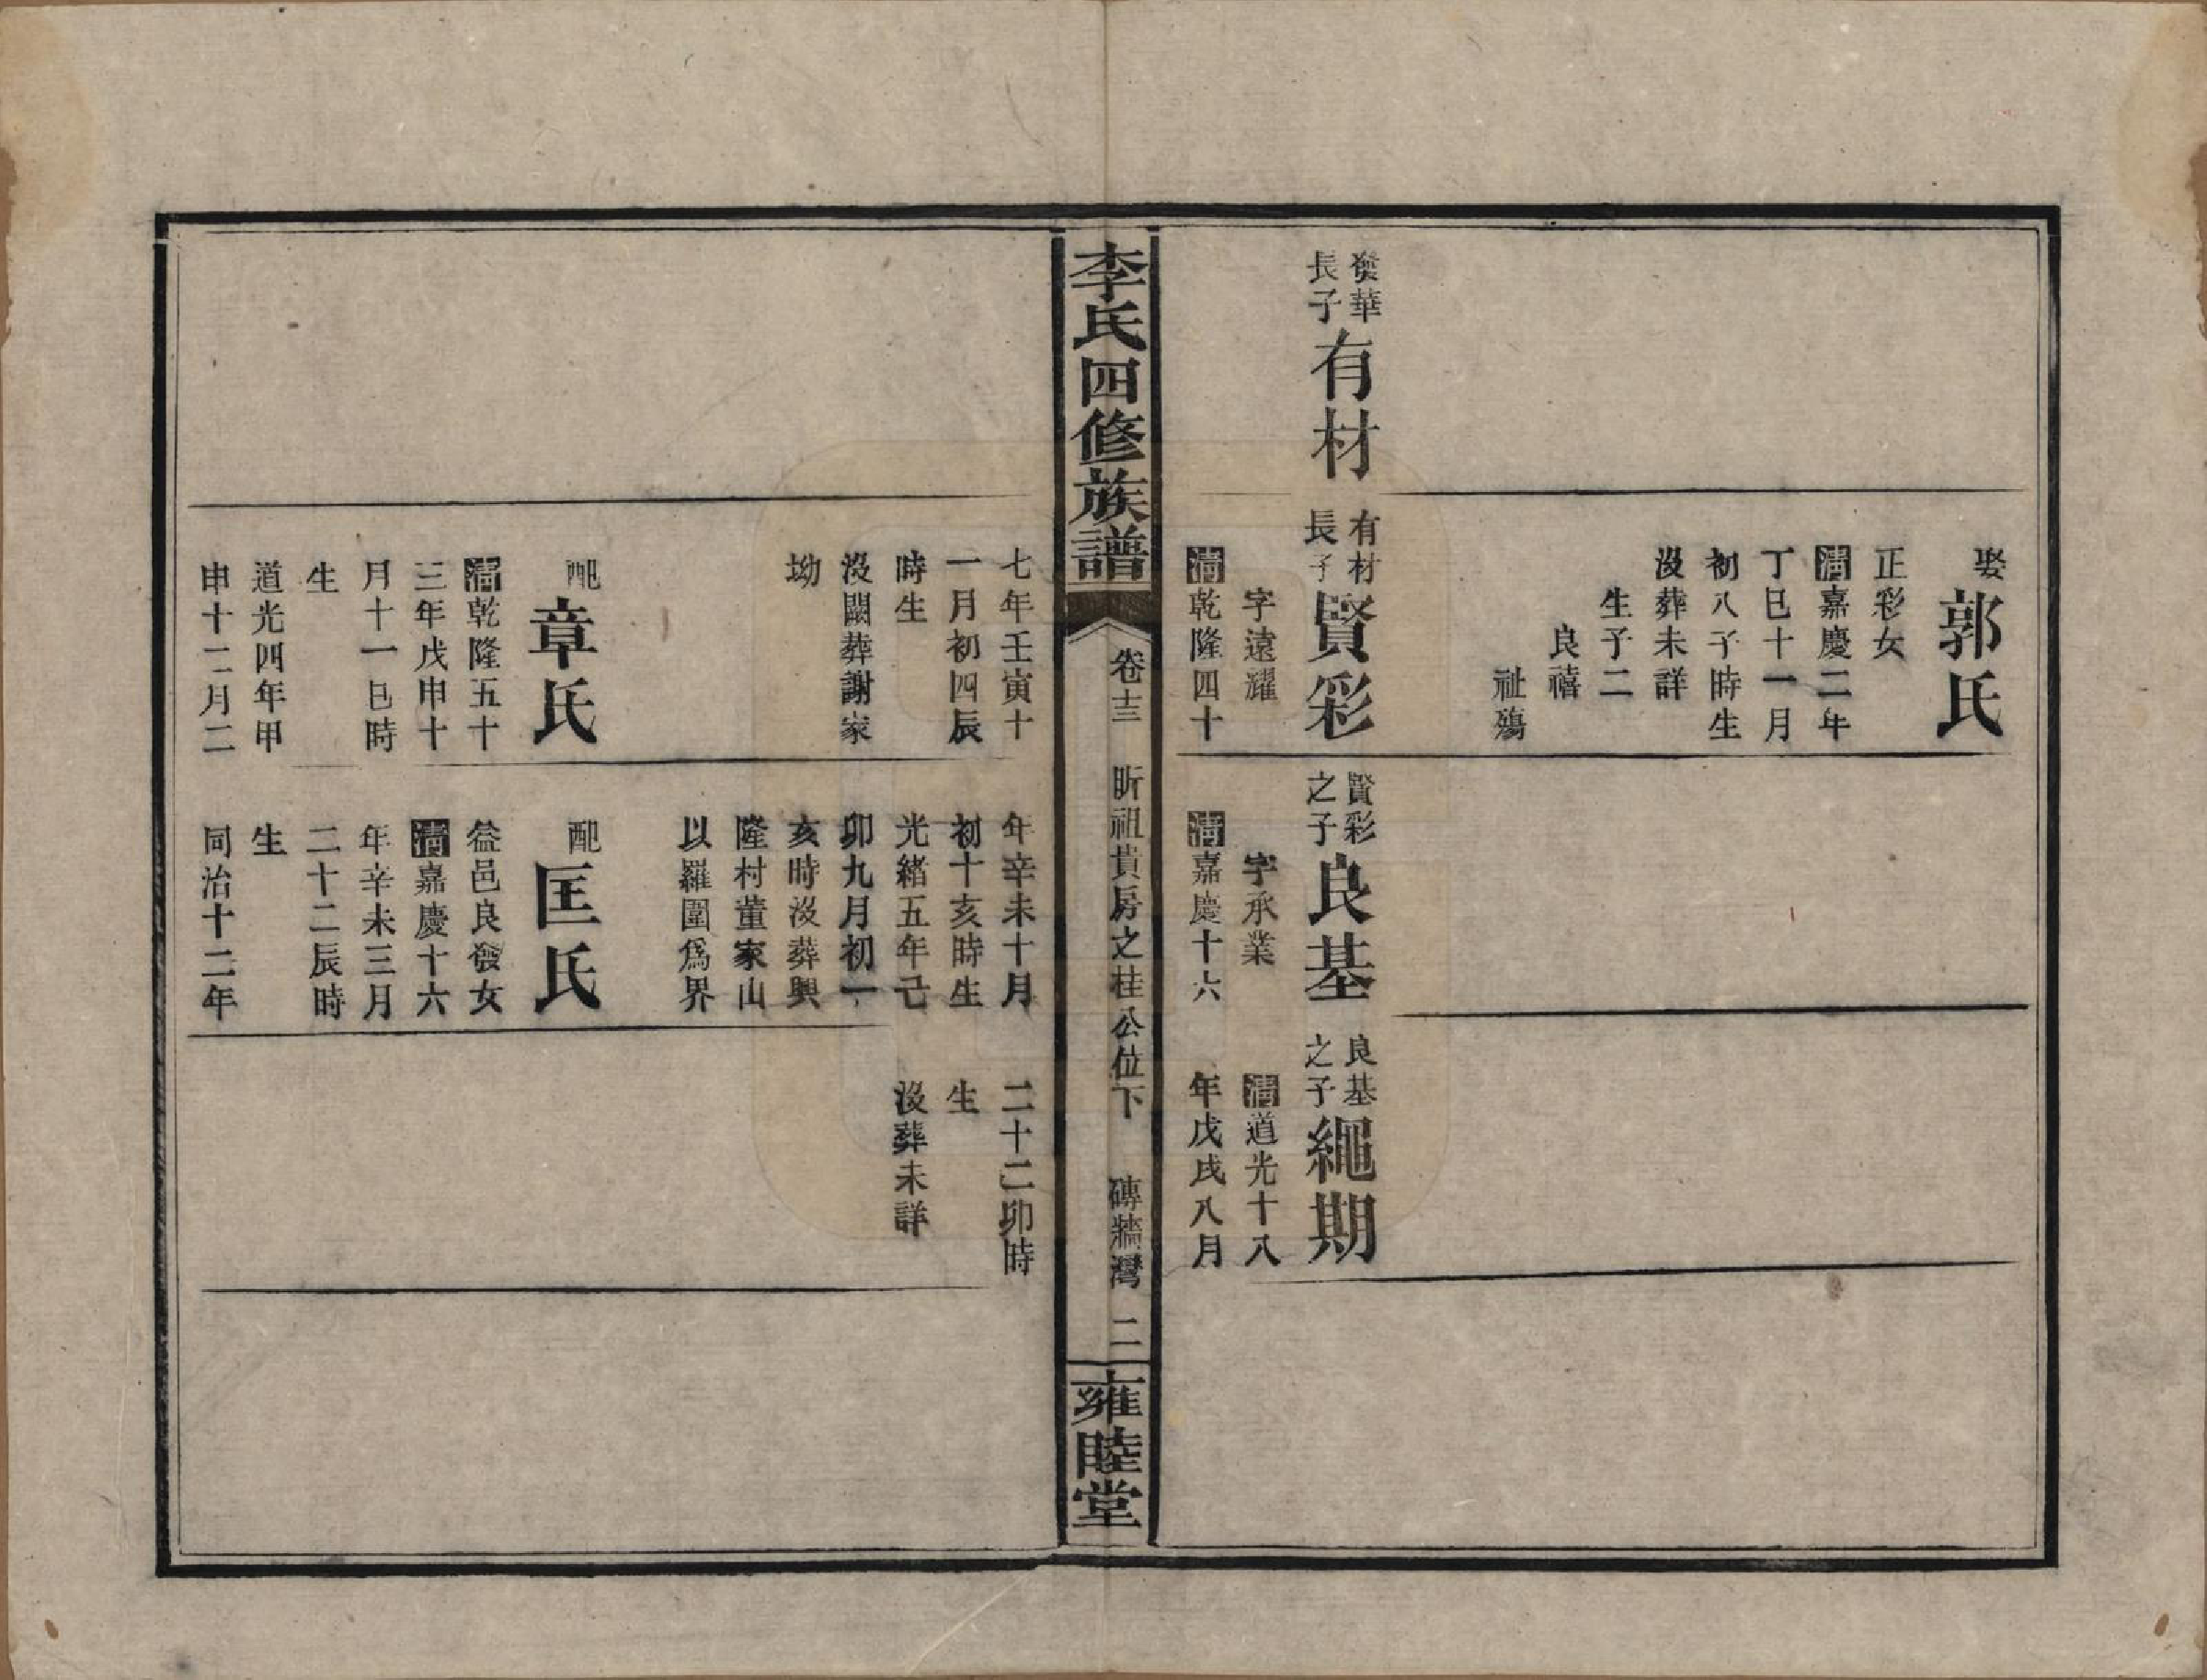 娶郭氏
正彩女
清嘉慶二年
丁巳十一月
初八子時生
沒葬未詳
生子二
良禧
祉殤
發華
長子
有材
有材
長子
賢彩
字遠耀
清乾隆四十
賢彩
之子
良基
字承業
清嘉慶十六
良基
之子
繩期
清道光十八
年戊戌八月
李氏四修族譜
卷十三
昕祖貴房之桂公位下
磚牆灣
二
雍睦堂
七年壬寅十
一月初四辰
時生
沒關葬謝家
坳
配章氏
清乾隆五十
三年戊申十
月十一巳時
生
道光四年甲
申十二月二
年辛未十月
初十亥時生
光緒五年己
卯九月初一
亥時沒葬興
隆村董家山
以羅圍爲界
配匡氏
益邑良發女
清嘉慶十六
年辛未三月
二十二辰時
生
同治十二年
二十二卯時
生
沒葬未詳